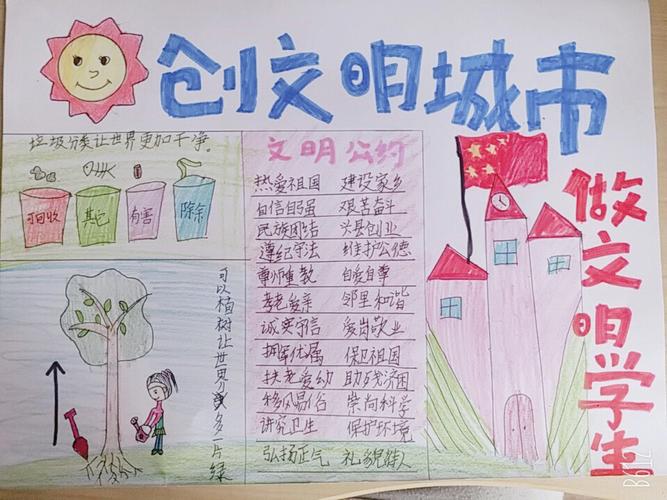 创文明城市
做文明学生
垃圾分类让世界更加干净
可回收 其它 有害 除余
可以植树让世界多一片绿
文明公约
热爱祖国 建设家乡
自信自强 艰苦奋斗
民族团结 兴县创业
遵纪守法 维护公德
尊师重教 自爱自尊
孝老爱亲 邻里和谐
诚实守信 爱岗敬业
拥军优属 保卫祖国
扶老爱幼 助残济困
移风易俗 崇尚科学
讲究卫生 保护环境
弘扬正气 礼貌待人